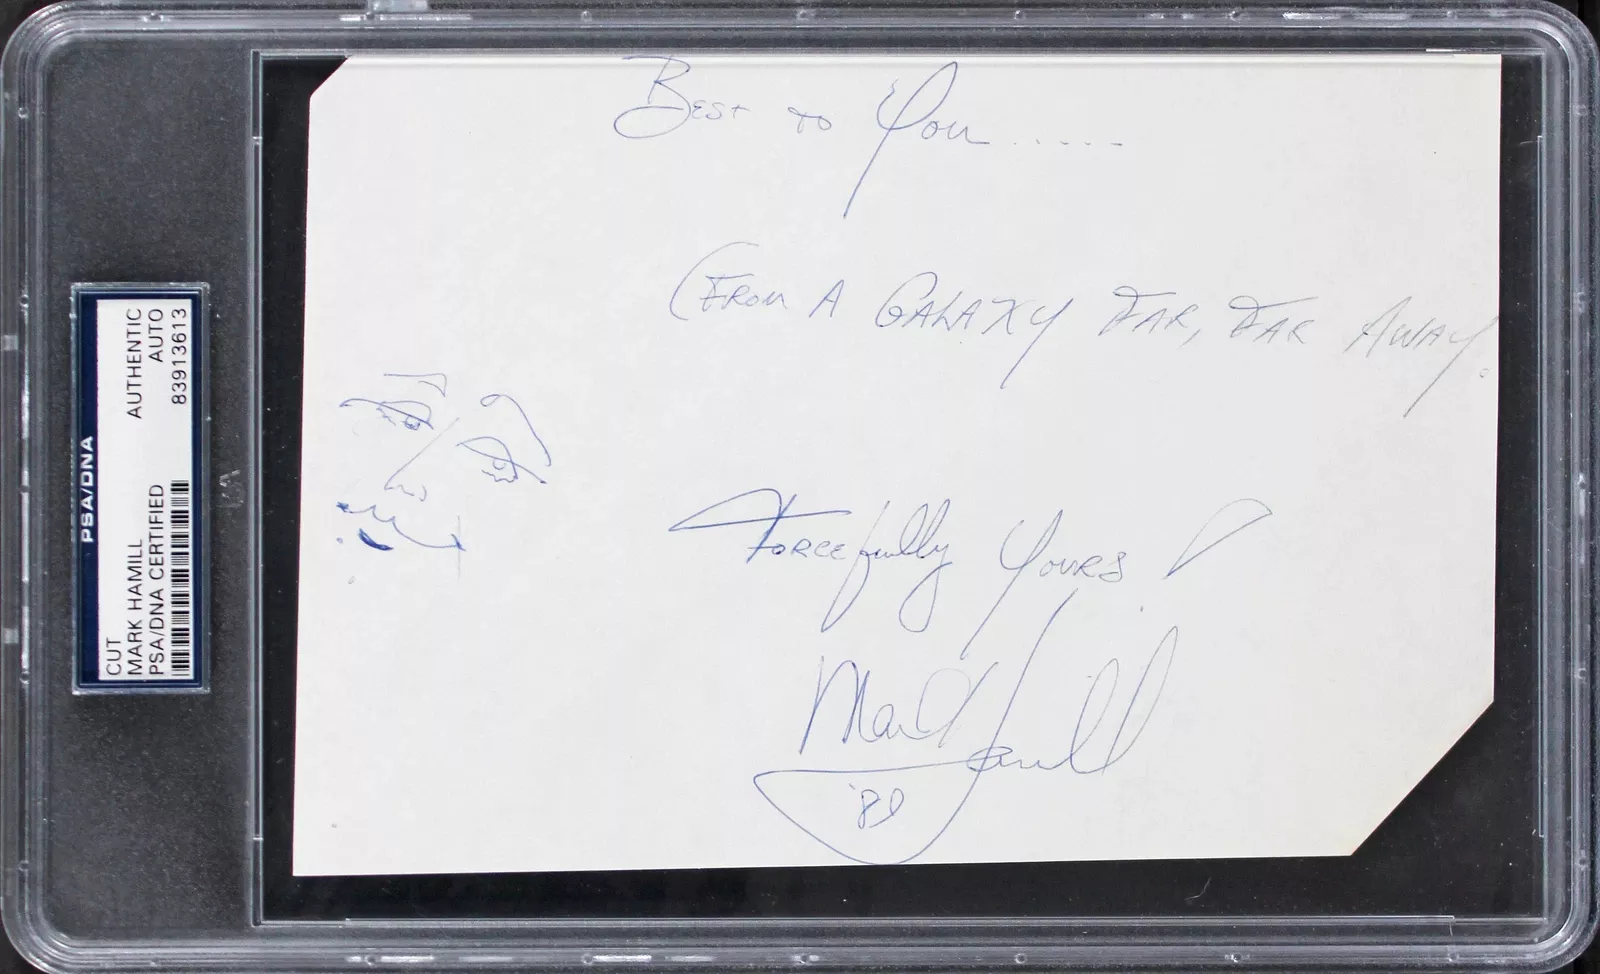 PSA/DNA
CUT
MARK HAMILL AUTHENTIC
PSA/DNA CERTIFIED AUTO
83913613
Best to You......
(From A GALAXY FAR, FAR AWAY.
Forcefully Yours!
Mark Hamill